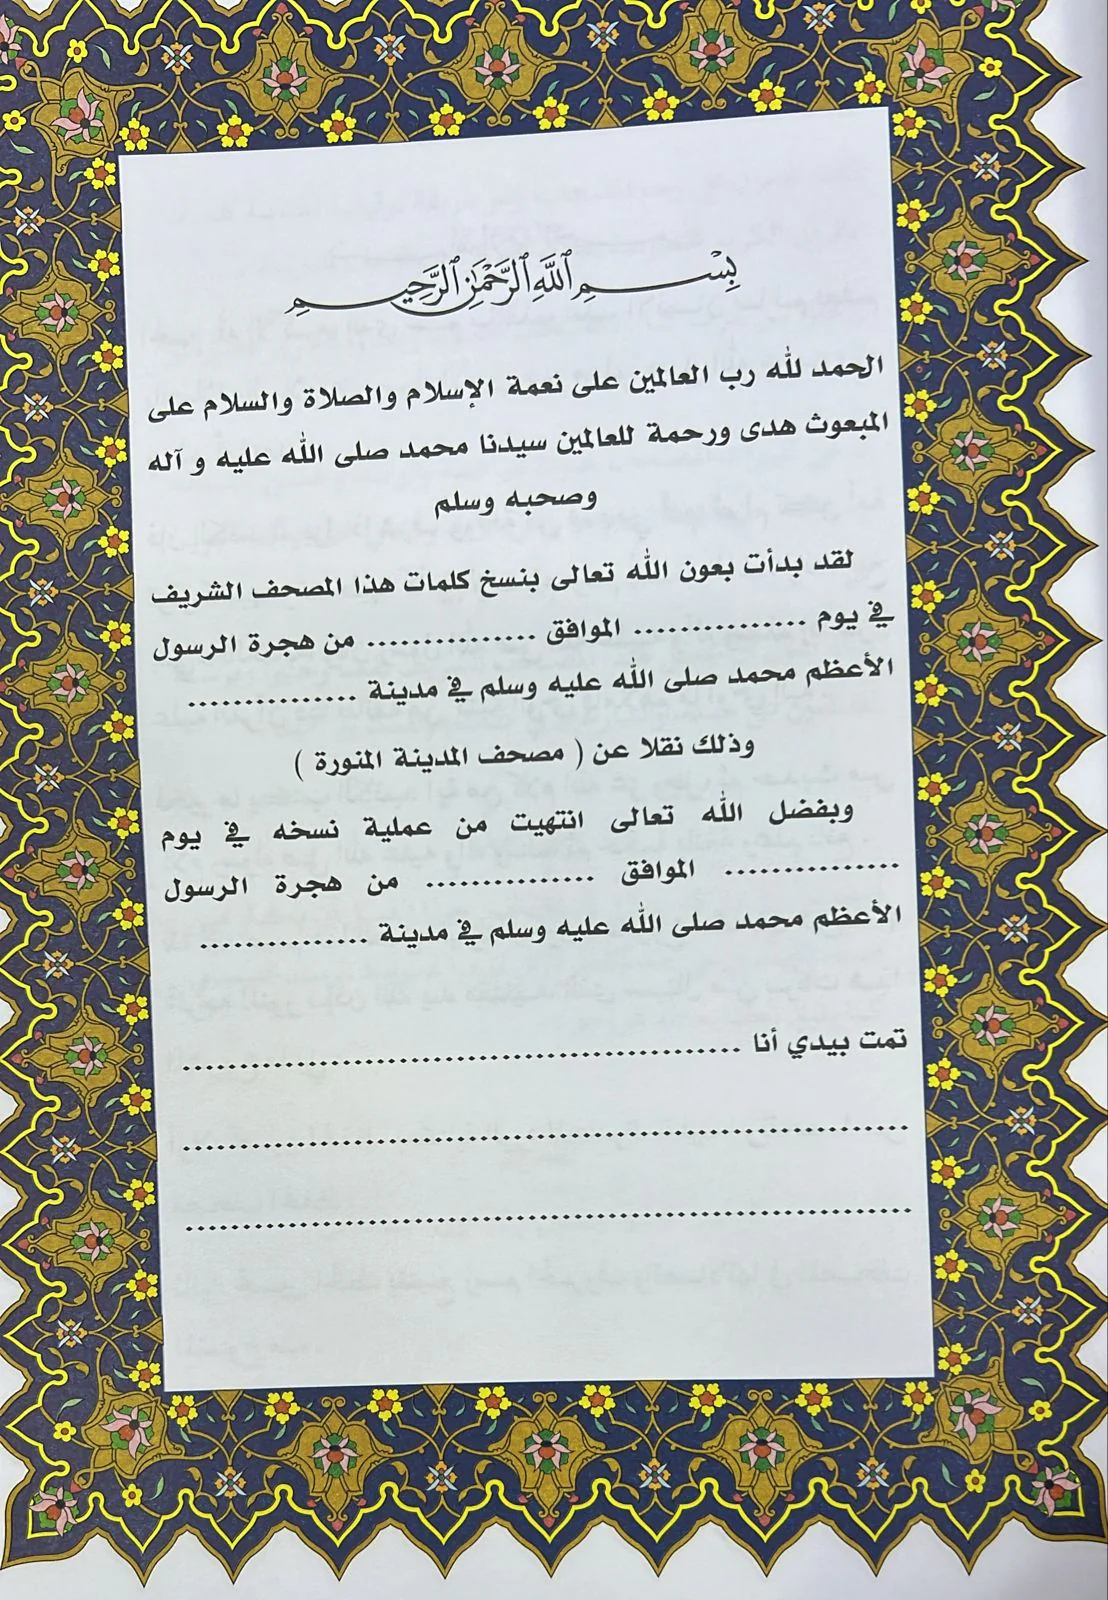 بِسْمِ ٱللَّهِ ٱلرَّحْمَٰنِ ٱلرَّحِيمِ
الحمد لله رب العالمين على نعمة الإسلام والصلاة والسلام على
المبعوث هدى ورحمة للعالمين سيدنا محمد صلى الله عليه و آله
وصحبه وسلم
لقد بدأت بعون الله تعالى بنسخ كلمات هذا المصحف الشريف
في يوم ............... الموافق ............... من هجرة الرسول
الأعظم محمد صلى الله عليه وسلم في مدينة ...............
وذلك نقلا عن ( مصحف المدينة المنورة )
وبفضل الله تعالى انتهيت من عملية نسخه في يوم
............... الموافق ............... من هجرة الرسول
الأعظم محمد صلى الله عليه وسلم في مدينة ...............
تمت بيدي أنا ..................................................
.................................................................
.................................................................